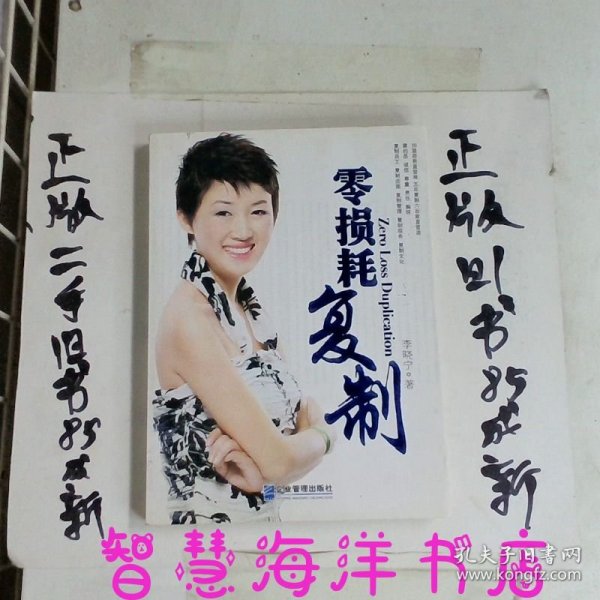 正版二手旧书85成新
零损耗
复制
Zero Loss Duplication
李晓宁 著
企业管理出版社
正版旧书85成新
智慧海洋书店
孔夫子旧书网
www.kongfz.com